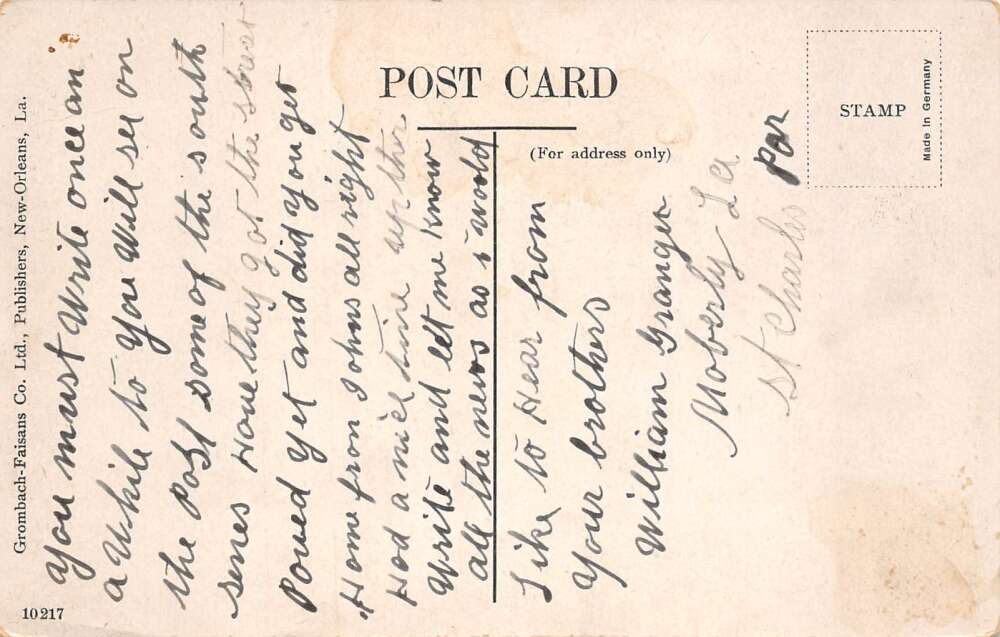 POST CARD
(For address only)
STAMP
Made in Germany
Grombach-Faisans Co. Ltd., Publishers, New-Orleans, La.
10217
you must Write once an
a While to you Will see on
the Post some of the south
senes Have they got the street
Paved yet and did you get
Home from Johns all right
Had a nice time up ther
Write and let me know
all the news as i would
Like to Hear from
your brothers
William Granger
Moberly La
St Charles Par